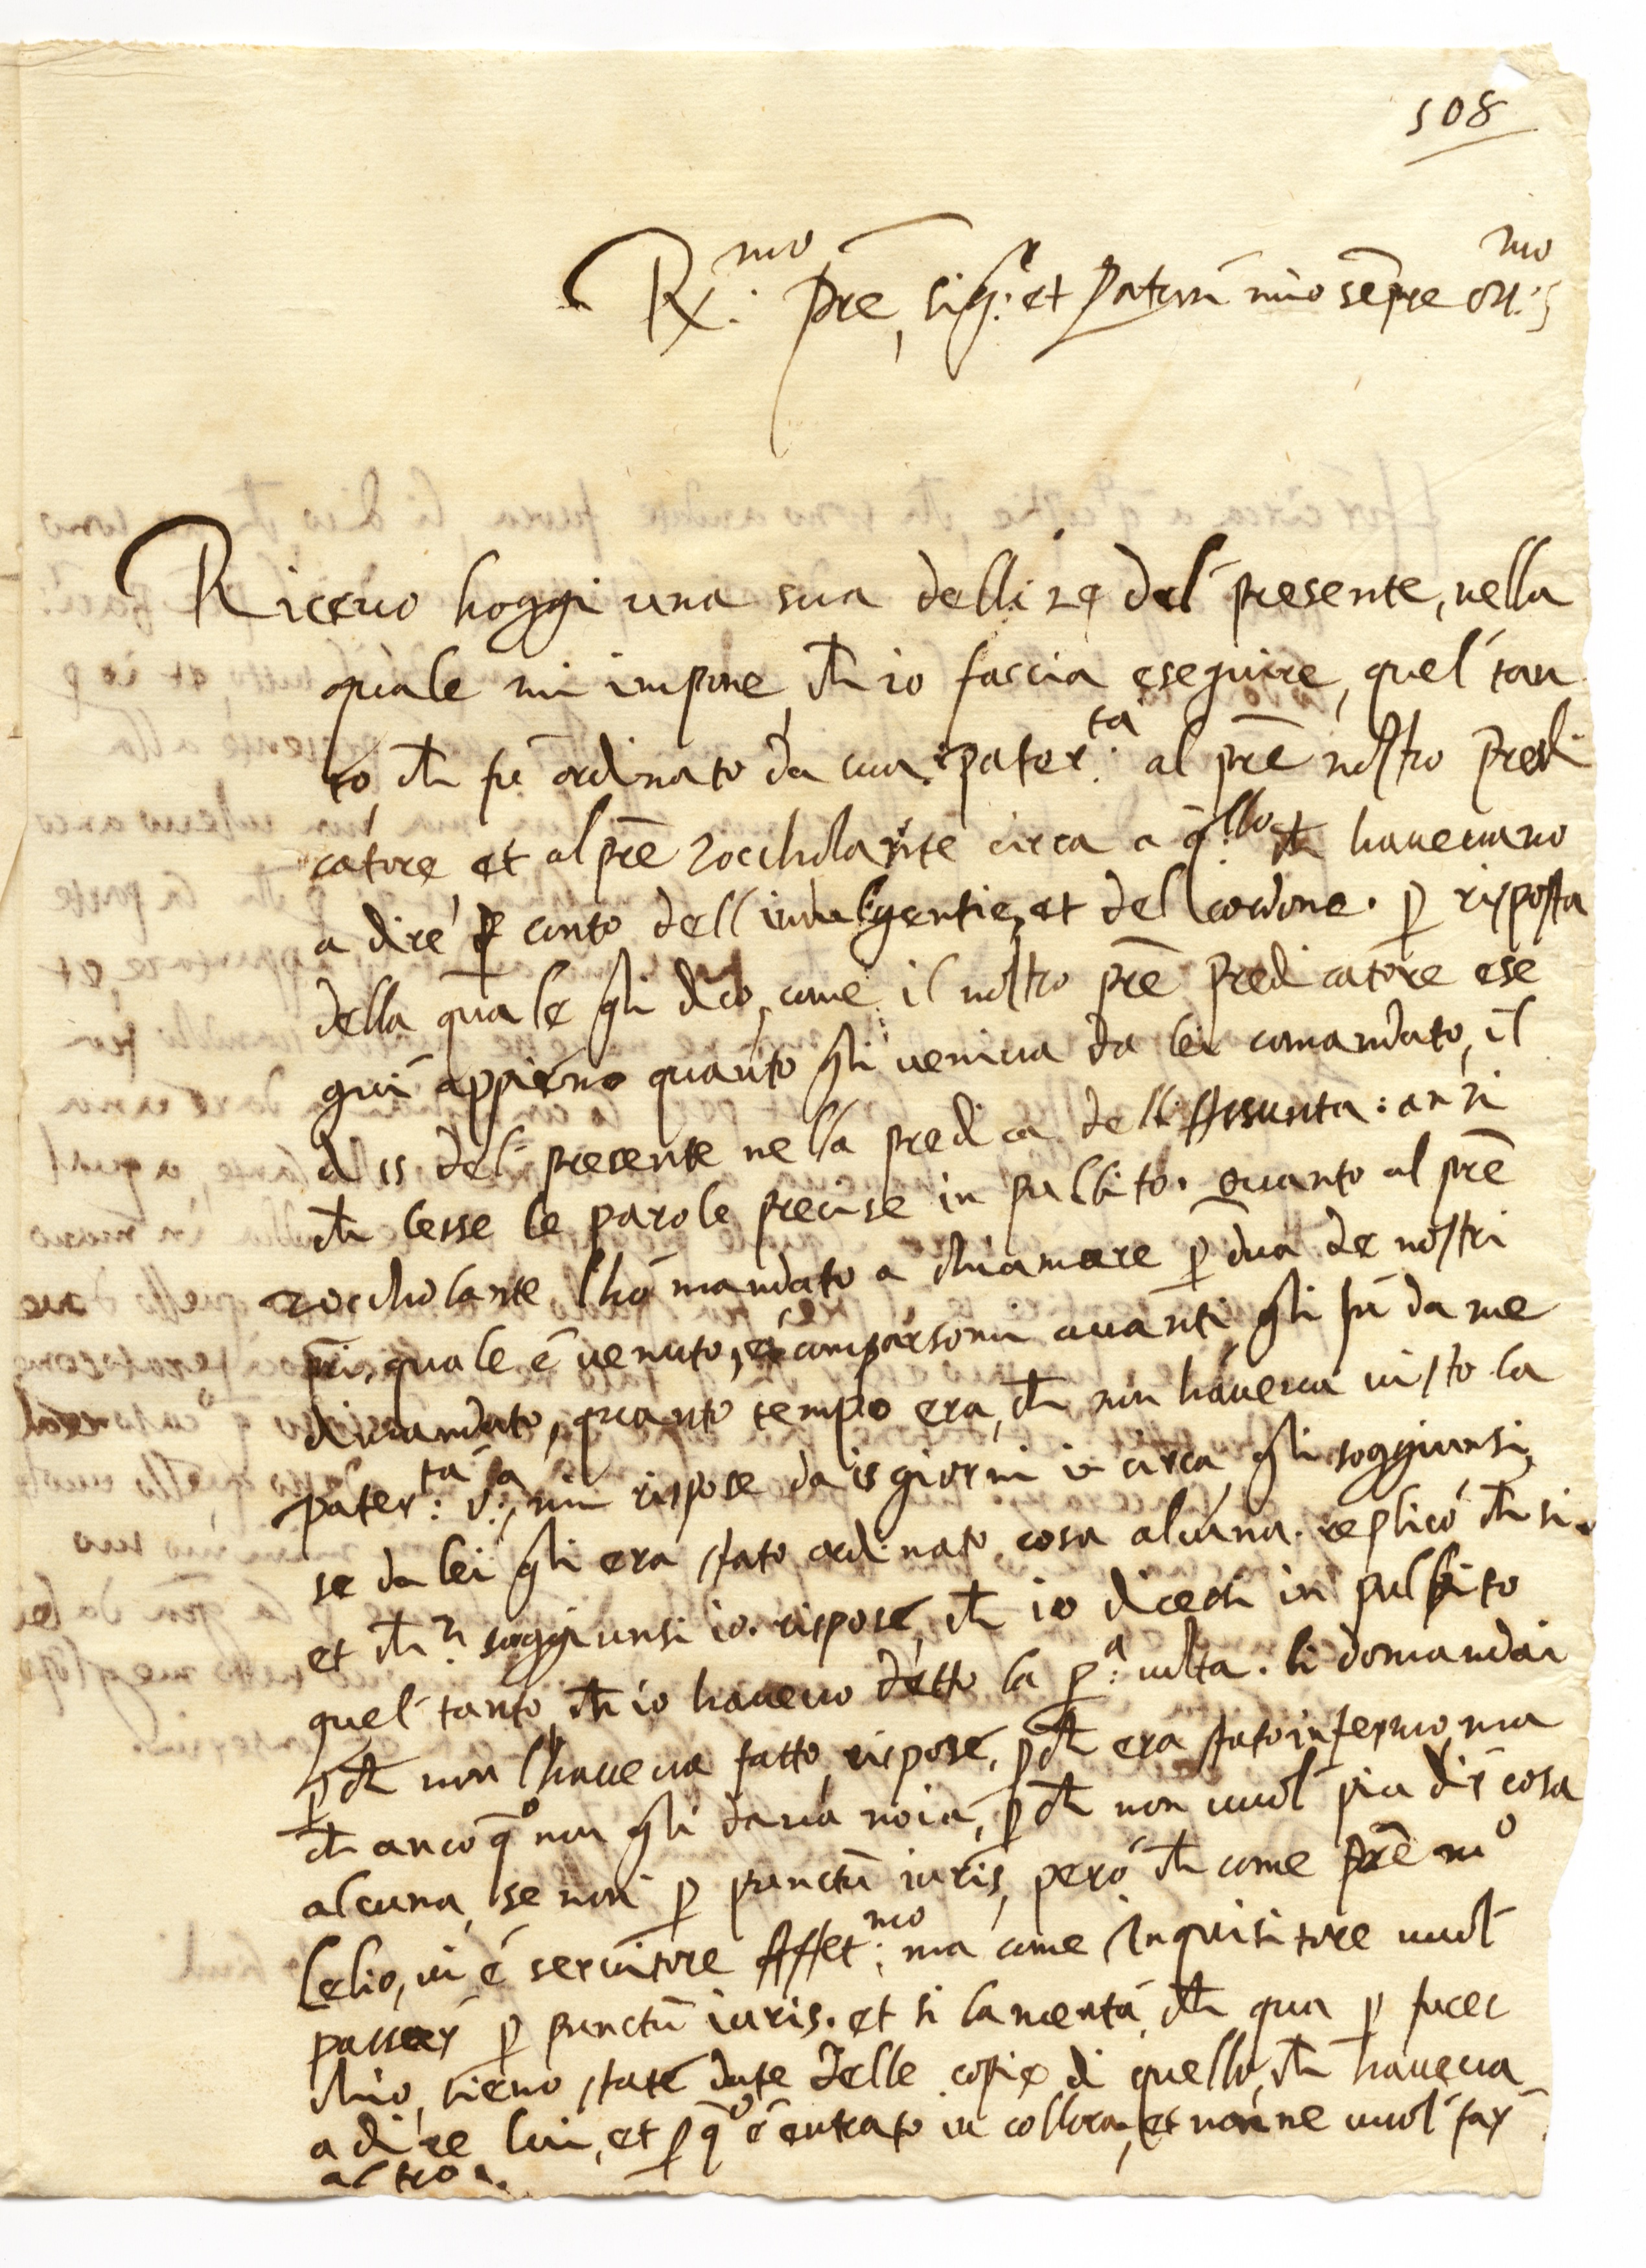 508
R.mo Pre, sig.r et Patron mio sempre oss.mo
Ricevo hoggi una sua delli 29 del presente, nella
quale mi impone, ch io faccia eseguire, quel tan
to ch fu ordinato da sua pater.tà al pre nostro predi
catore et al pre zocchola nte circa a q.llo ch havevano
a dire p conto dell indulgentie, et del cordone. p risposta
della quale gli dico, come il nostro pre predicatore ese
gui appieno quanto gli veniva da lei comandato, il
di 15 del presente nella predica dell Assunta: anzi
ch lesse le parole precise in pulbito. Quanto al pre
zoccholante, l ho mandato a chiamare p dua de nostri
pri, quale è venuto, et comparsomi avanti, gli fu da me
dimandato, quanto tempo era, ch non haveva visto la
pater.tà v.a, mi rispose da 15 giorni in circa, gli soggiunsi,
se da lei gli era stato ordinato cosa alcuna. replicò ch si.
et ch? soggiunsi io. rispose, ch io dicessi in pulpito
quel tanto ch io havevo detto la p.a volta. li domandai
pch non l haveva fatto, rispose, pch era stato infermo, ma
ch anco q.o non gli dava noia, pch non vuol piu dir cosa
alcuna, se non p punctu iuris, però ch come pre m.o
Lelio, vi è servitore Affet.mo ma come Inquisitore vuol
passar p punctu iuris. et si lamenta, ch qua p fucec
chio, sieno state date delle copie di quello, ch haveva
a dire lui, et p q.o è entrato in collora, et non ne vuol far
altro.